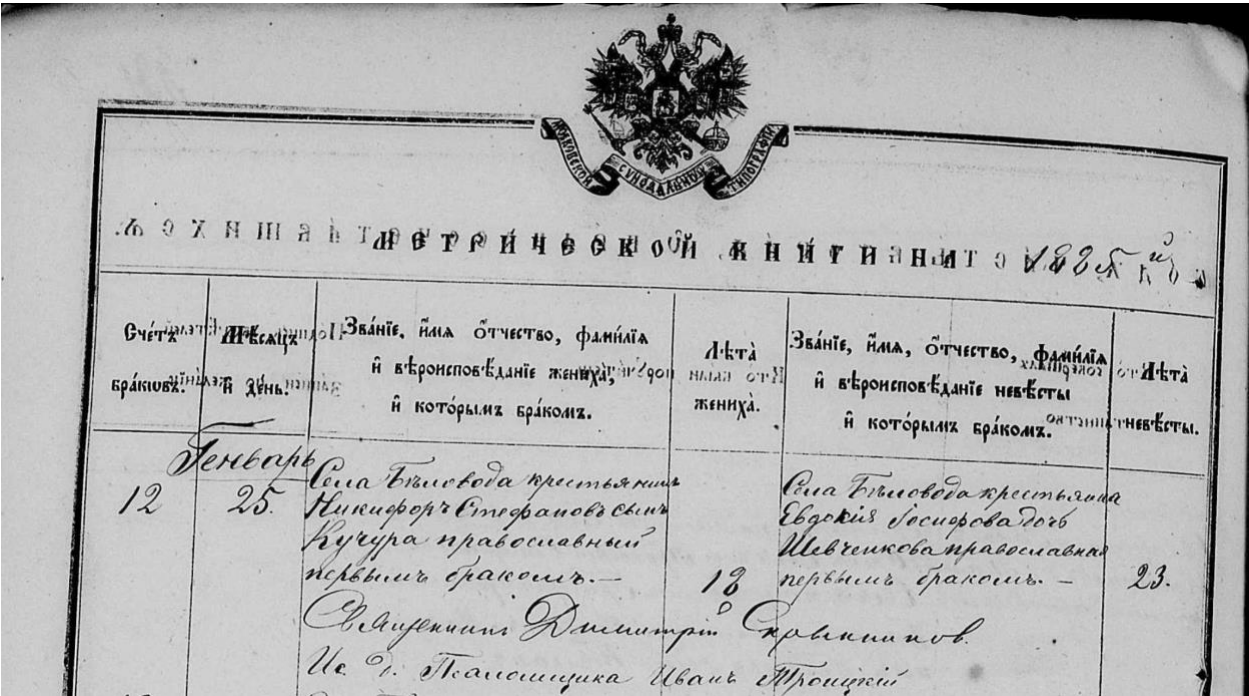 МОСКОВСКОЙ СѴНОДАЛЬНОЙ ТИПОГРАФІИ
МЕТРИЧЕСКОЙ КНИГИ НА 1885 й
Сче́тъ
бра́ковъ.
Мѣ́сяцъ
и҆ де́нь.
Зва́нїе, и҆́мя ѻ҆́тчество, фами́лїя
и҆ вѣроисповѣ́данїе жениха̀,
и҆ кото́рымъ бра́комъ.
Лѣ̑та̀
жениха̀.
Зва́нїе, и҆́мя, ѻ҆́тчество, фами́лїя
и҆ вѣроисповѣ́данїе невѣ́сты
и҆ кото́рымъ бра́комъ.
Лѣ̑та̀
невѣ́сты.
Генварь
12
25.
Села Бѣловода крестьянинъ
Никифоръ Стефановъ сынъ
Кучура православный
первымъ бракомъ. —
18
Села Бѣловода крестьянка
Евдокія Іосифова дочь
Шевченкова православная
первымъ бракомъ. —
23.
Священникъ Димитрій
Ис. д. Псаломщика Иванъ Троицкій